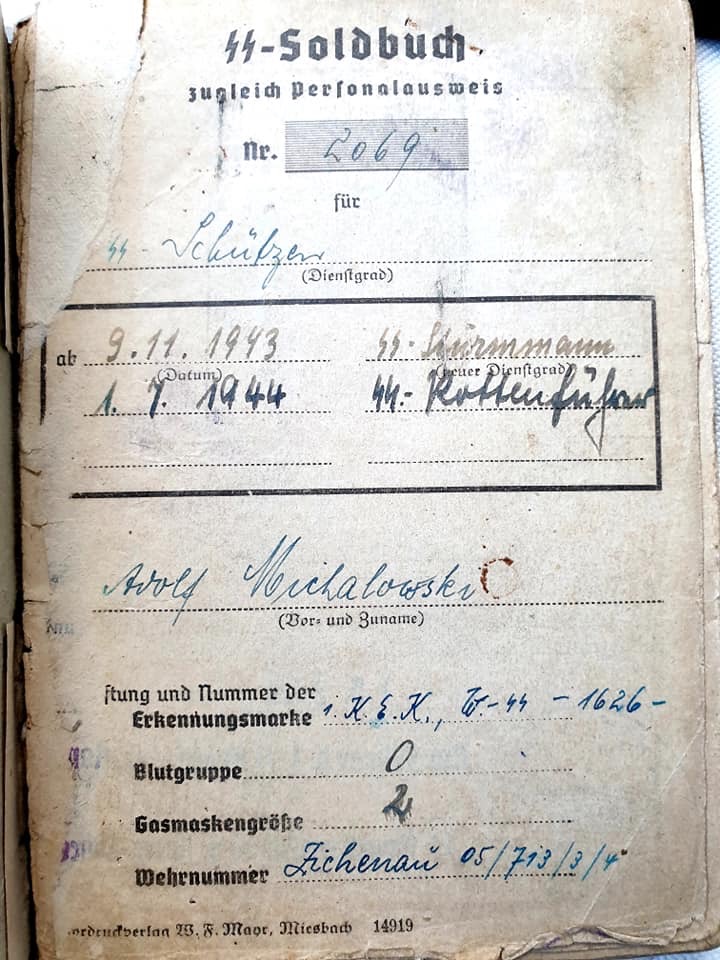 ᛋᛋ-Soldbuch
zugleich Personalausweis
Nr. 2069
für
ᛋᛋ-Schützen
(Dienstgrad)
ab 9.11.1943 ᛋᛋ-Sturmmann
(Datum) (neuer Dienstgrad)
1. 7. 1944 ᛋᛋ-Rottenführer
Adolf Michalowski
(Vor- und Zuname)
ftung und Nummer der
Erkennungsmarke 1. K.E.K., W.-ᛋᛋ - 1626 -
Blutgruppe O
Gasmaskengröße 2
Wehrnummer Zichenau 05/713/3/4
ordruckverlag W. F. Mayr, Miesbach 14919